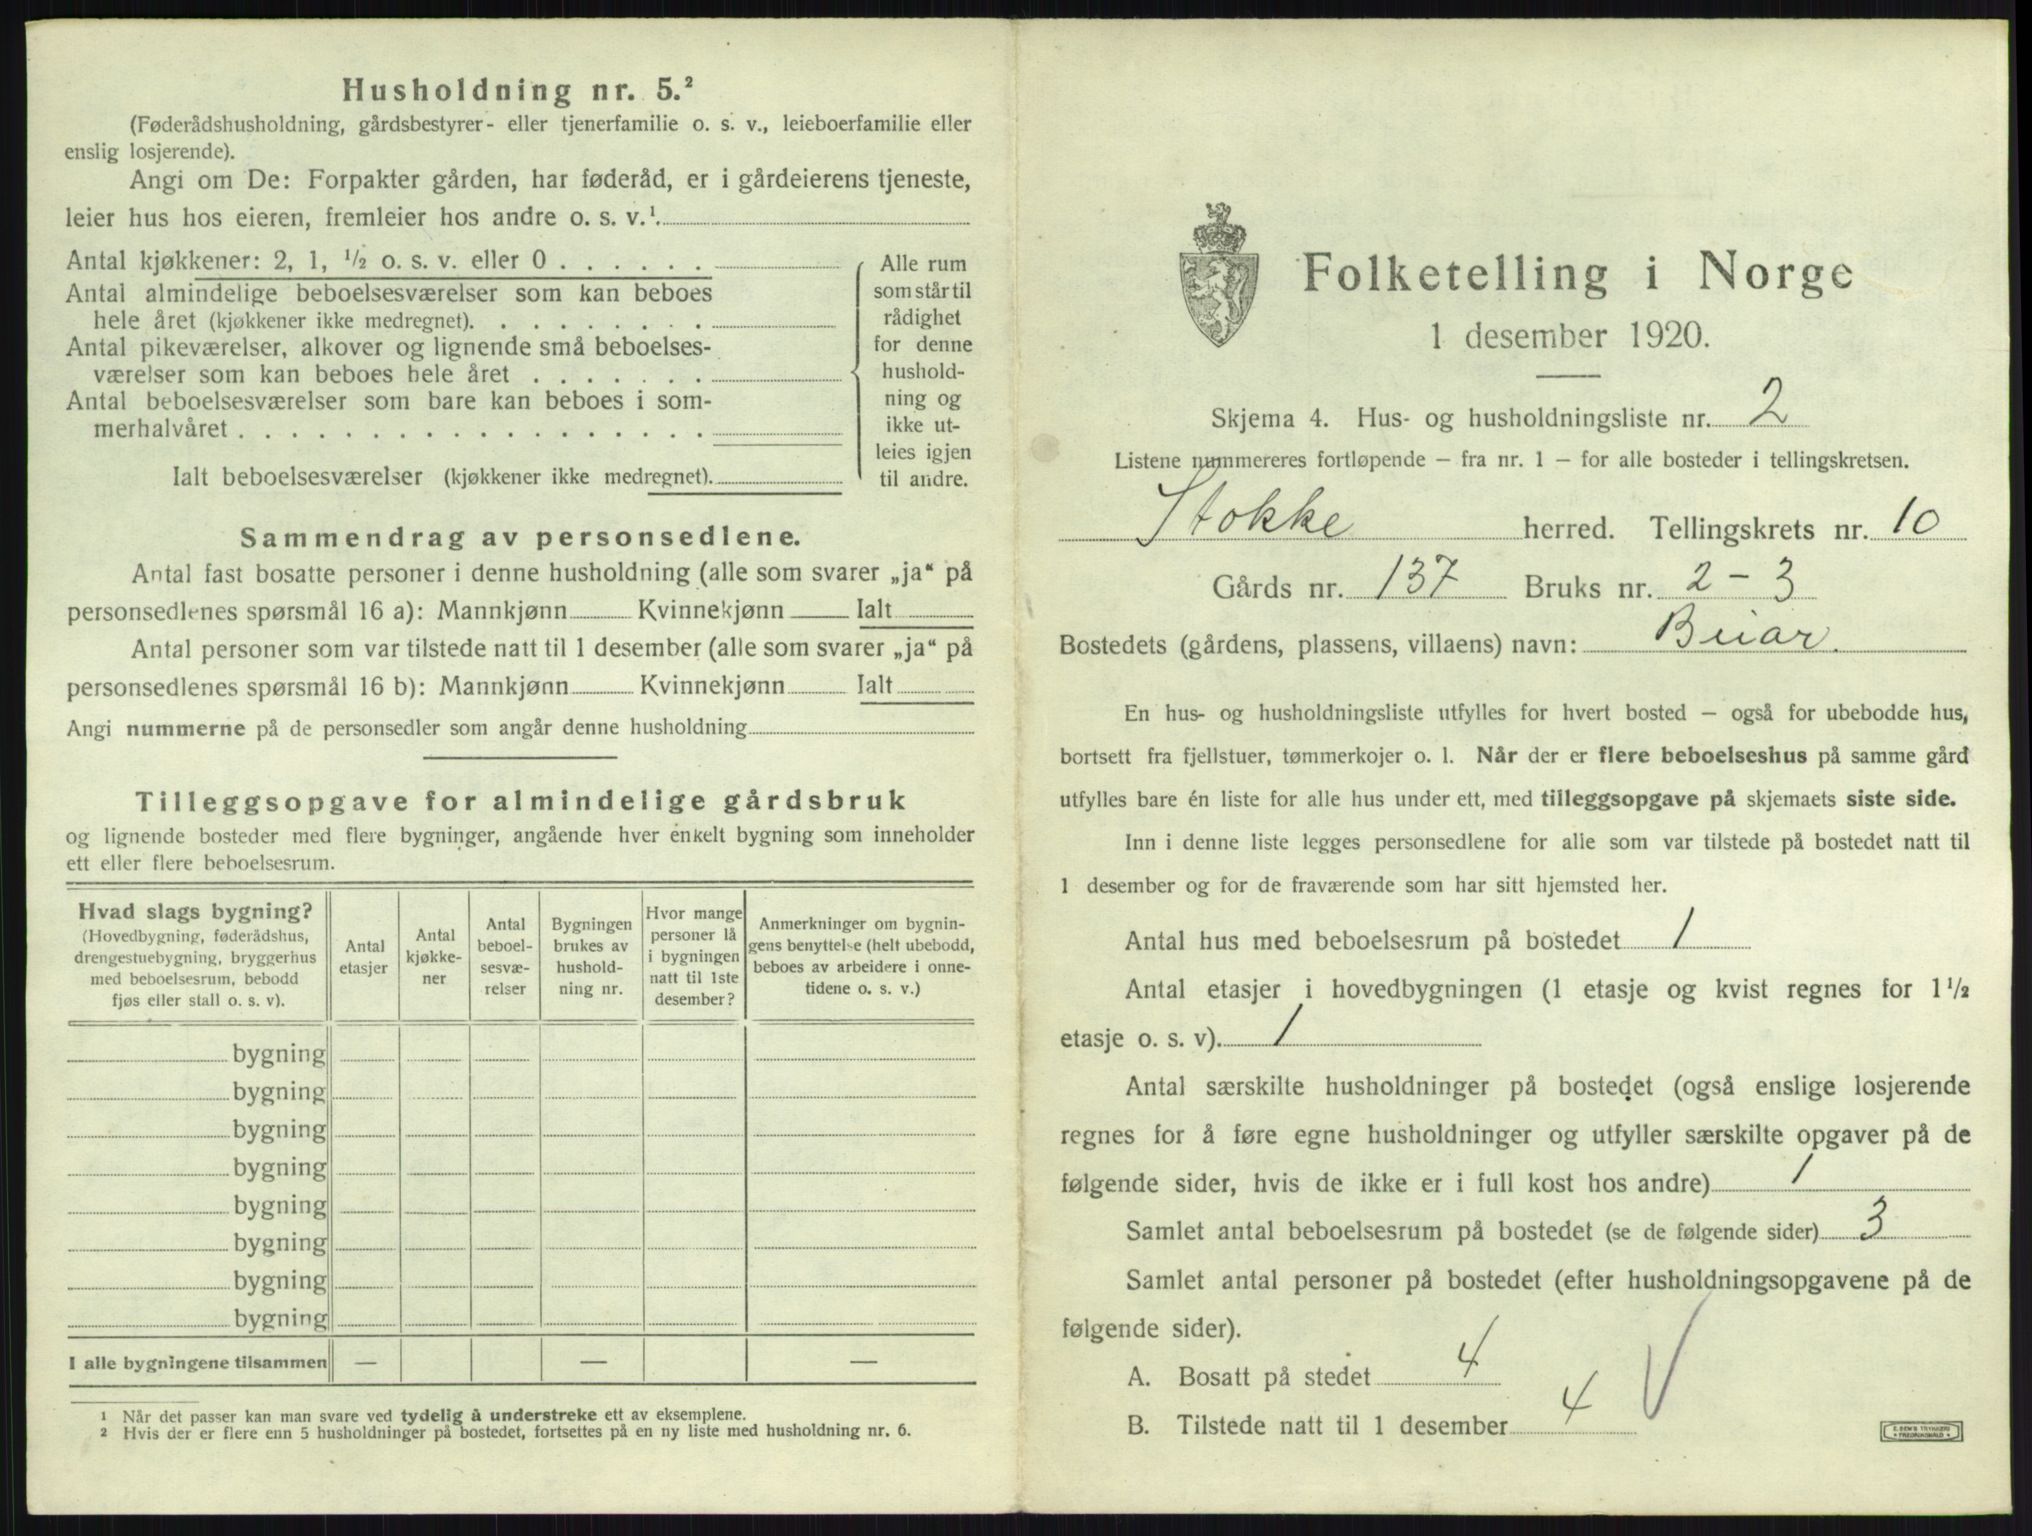 Husholdning nr. 5.²
(Føderådshusholdning, gårdsbestyrer- eller tjenerfamilie o. s. v., leieboerfamilie eller
enslig losjerende).
Angi om De: Forpakter gården, har føderåd, er i gårdeierens tjeneste,
leier hus hos eieren, fremleier hos andre o. s. v.¹
Antal kjøkkener: 2, 1, ½ o. s. v. eller 0 . . . . . .
Antal almindelige beboelsesværelser som kan beboes
hele året (kjøkkener ikke medregnet). . . . . . . . .
Antal pikeværelser, alkover og lignende små beboelses-
værelser som kan beboes hele året . . . . . . .
Antal beboelsesværelser som bare kan beboes i som-
merhalvåret . . . . . . . . . . . . . . . . . .
Ialt beboelsesværelser (kjøkkener ikke medregnet).
Alle rum
som står til
rådighet
for denne
hushold-
ning og
ikke ut-
leies igjen
til andre.
Sammendrag av personsedlene.
Antal fast bosatte personer i denne husholdning (alle som svarer „ja“ på
personsedlenes spørsmål 16 a): Mannkjønn Kvinnekjønn Ialt
Antal personer som var tilstede natt til 1 desember (alle som svarer „ja“ på
personsedlenes spørsmål 16 b): Mannkjønn Kvinnekjønn Ialt
Angi nummerne på de personsedler som angår denne husholdning
Tilleggsopgave for almindelige gårdsbruk
og lignende bosteder med flere bygninger, angående hver enkelt bygning som inneholder
ett eller flere beboelsesrum.
Hvad slags bygning?
(Hovedbygning, føderådshus,
drengestuebygning, bryggerhus
med beboelsesrum, bebodd
fjøs eller stall o. s. v).
Antal
etasjer
Antal
kjøkke-
ner
Antal
beboel-
sesvæ-
relser
Bygningen
brukes av
hushold-
ning nr.
Hvor mange
personer lå
i bygningen
natt til 1ste
desember?
Anmerkninger om bygnin-
gens benyttelse (helt ubebodd,
beboes av arbeidere i onne-
tidene o. s. v.)
bygning
bygning
bygning
bygning
bygning
bygning
bygning
bygning
I alle bygningene tilsammen — — —
¹ Når det passer kan man svare ved tydelig å understreke ett av eksemplene.
² Hvis der er flere enn 5 husholdninger på bostedet, fortsettes på en ny liste med husholdning nr. 6.
Folketelling i Norge
1 desember 1920.
Skjema 4. Hus- og husholdningsliste nr. 2
Listene nummereres fortløpende – fra nr. 1 – for alle bosteder i tellingskretsen.
Stokke herred. Tellingskrets nr. 10
Gårds nr. 137 Bruks nr. 2 - 3
Bostedets (gårdens, plassens, villaens) navn: Buar.
En hus- og husholdningsliste utfylles for hvert bosted – også for ubebodde hus,
bortsett fra fjellstuer, tømmerkojer o. l. Når der er flere beboelseshus på samme gård
utfylles bare én liste for alle hus under ett, med tilleggsopgave på skjemaets siste side.
Inn i denne liste legges personsedlene for alle som var tilstede på bostedet natt til
1 desember og for de fraværende som har sitt hjemsted her.
Antal hus med beboelsesrum på bostedet 1
Antal etasjer i hovedbygningen (1 etasje og kvist regnes for 1½
etasje o. s. v). 1
Antal særskilte husholdninger på bostedet (også enslige losjerende
regnes for å føre egne husholdninger og utfyller særskilte opgaver på de
følgende sider, hvis de ikke er i full kost hos andre) 1
Samlet antal beboelsesrum på bostedet (se de følgende sider) 3
Samlet antal personer på bostedet (efter husholdningsopgavene på de
følgende sider).
A. Bosatt på stedet 4
B. Tilstede natt til 1 desember 4